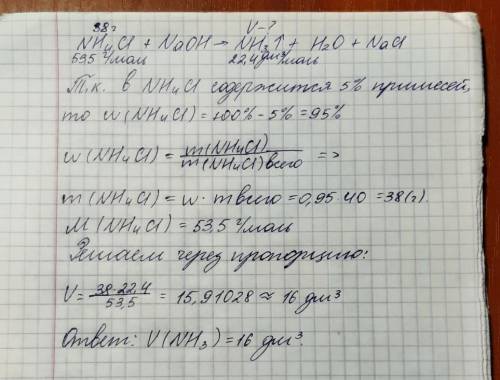 38г V-?
NH₄Cl + NaOH → NH₃↑ + H₂O + NaCl
53,5 г/моль 22,4 дм³/моль
Т.к. в NH₄Cl содержится 5% примесей,
то w(NH₄Cl) = 100% - 5% = 95%
w(NH₄Cl) = m(NH₄Cl) / m(NH₄Cl)всего =>
m(NH₄Cl) = w · mвсего = 0,95 · 40 = 38(г).
M(NH₄Cl) = 53,5 г/моль
Решаем через пропорцию:
V = 38·22,4 / 53,5 = 15,91028 ≈ 16 дм³
Ответ: V(NH₃) = 16 дм³.